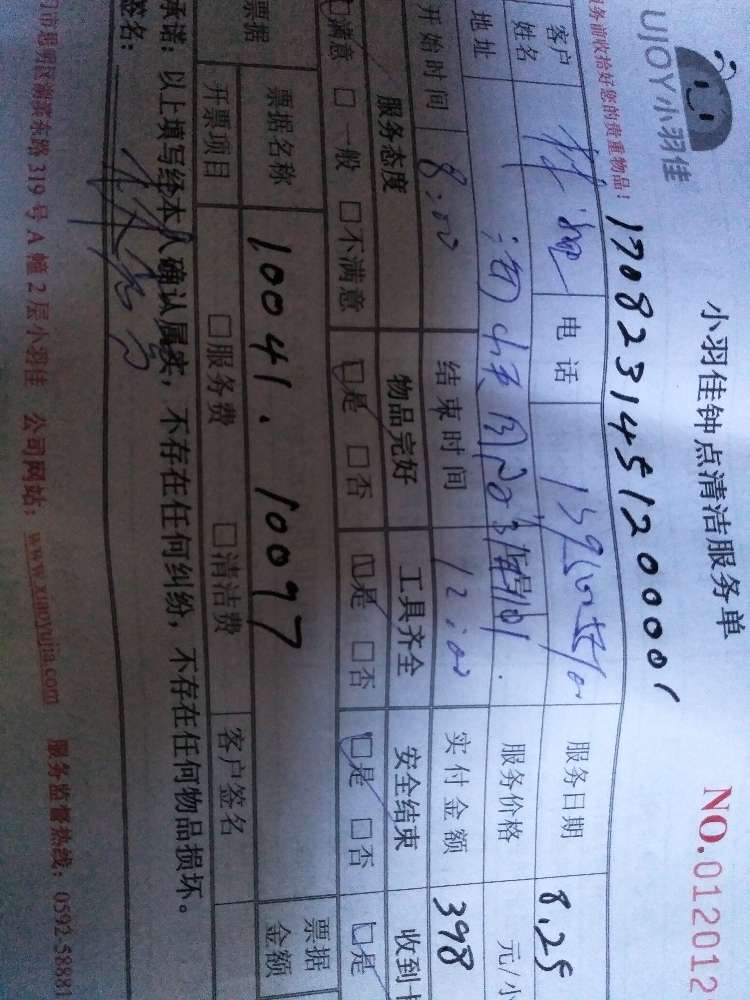 UJOY小羽佳
小羽佳钟点清洁服务单
NO.012012
服务前收拾好您的贵重物品！
1708231451200001
客户姓名 电话 服务日期 8.25
地址 服务价格 元/小
开始时间 8:00 结束时间 12:00 实付金额 398
服务态度 物品完好 工具齐全 安全结束 收到卡
□满意 □一般 □不满意 □是 □否 □是 □否 □是 □否 □是
票据 票据名称 10041. 10097 票据金额
开票项目 □服务费 □清洁费 客户签名
承诺：以上填写经本人确认属实，不存在任何纠纷，不存在任何物品损坏。
签名：
门市思明区湖滨东路319号A幢2层小羽佳 公司网站：www.xiaoyujia.com 服务监督热线：0592-58881